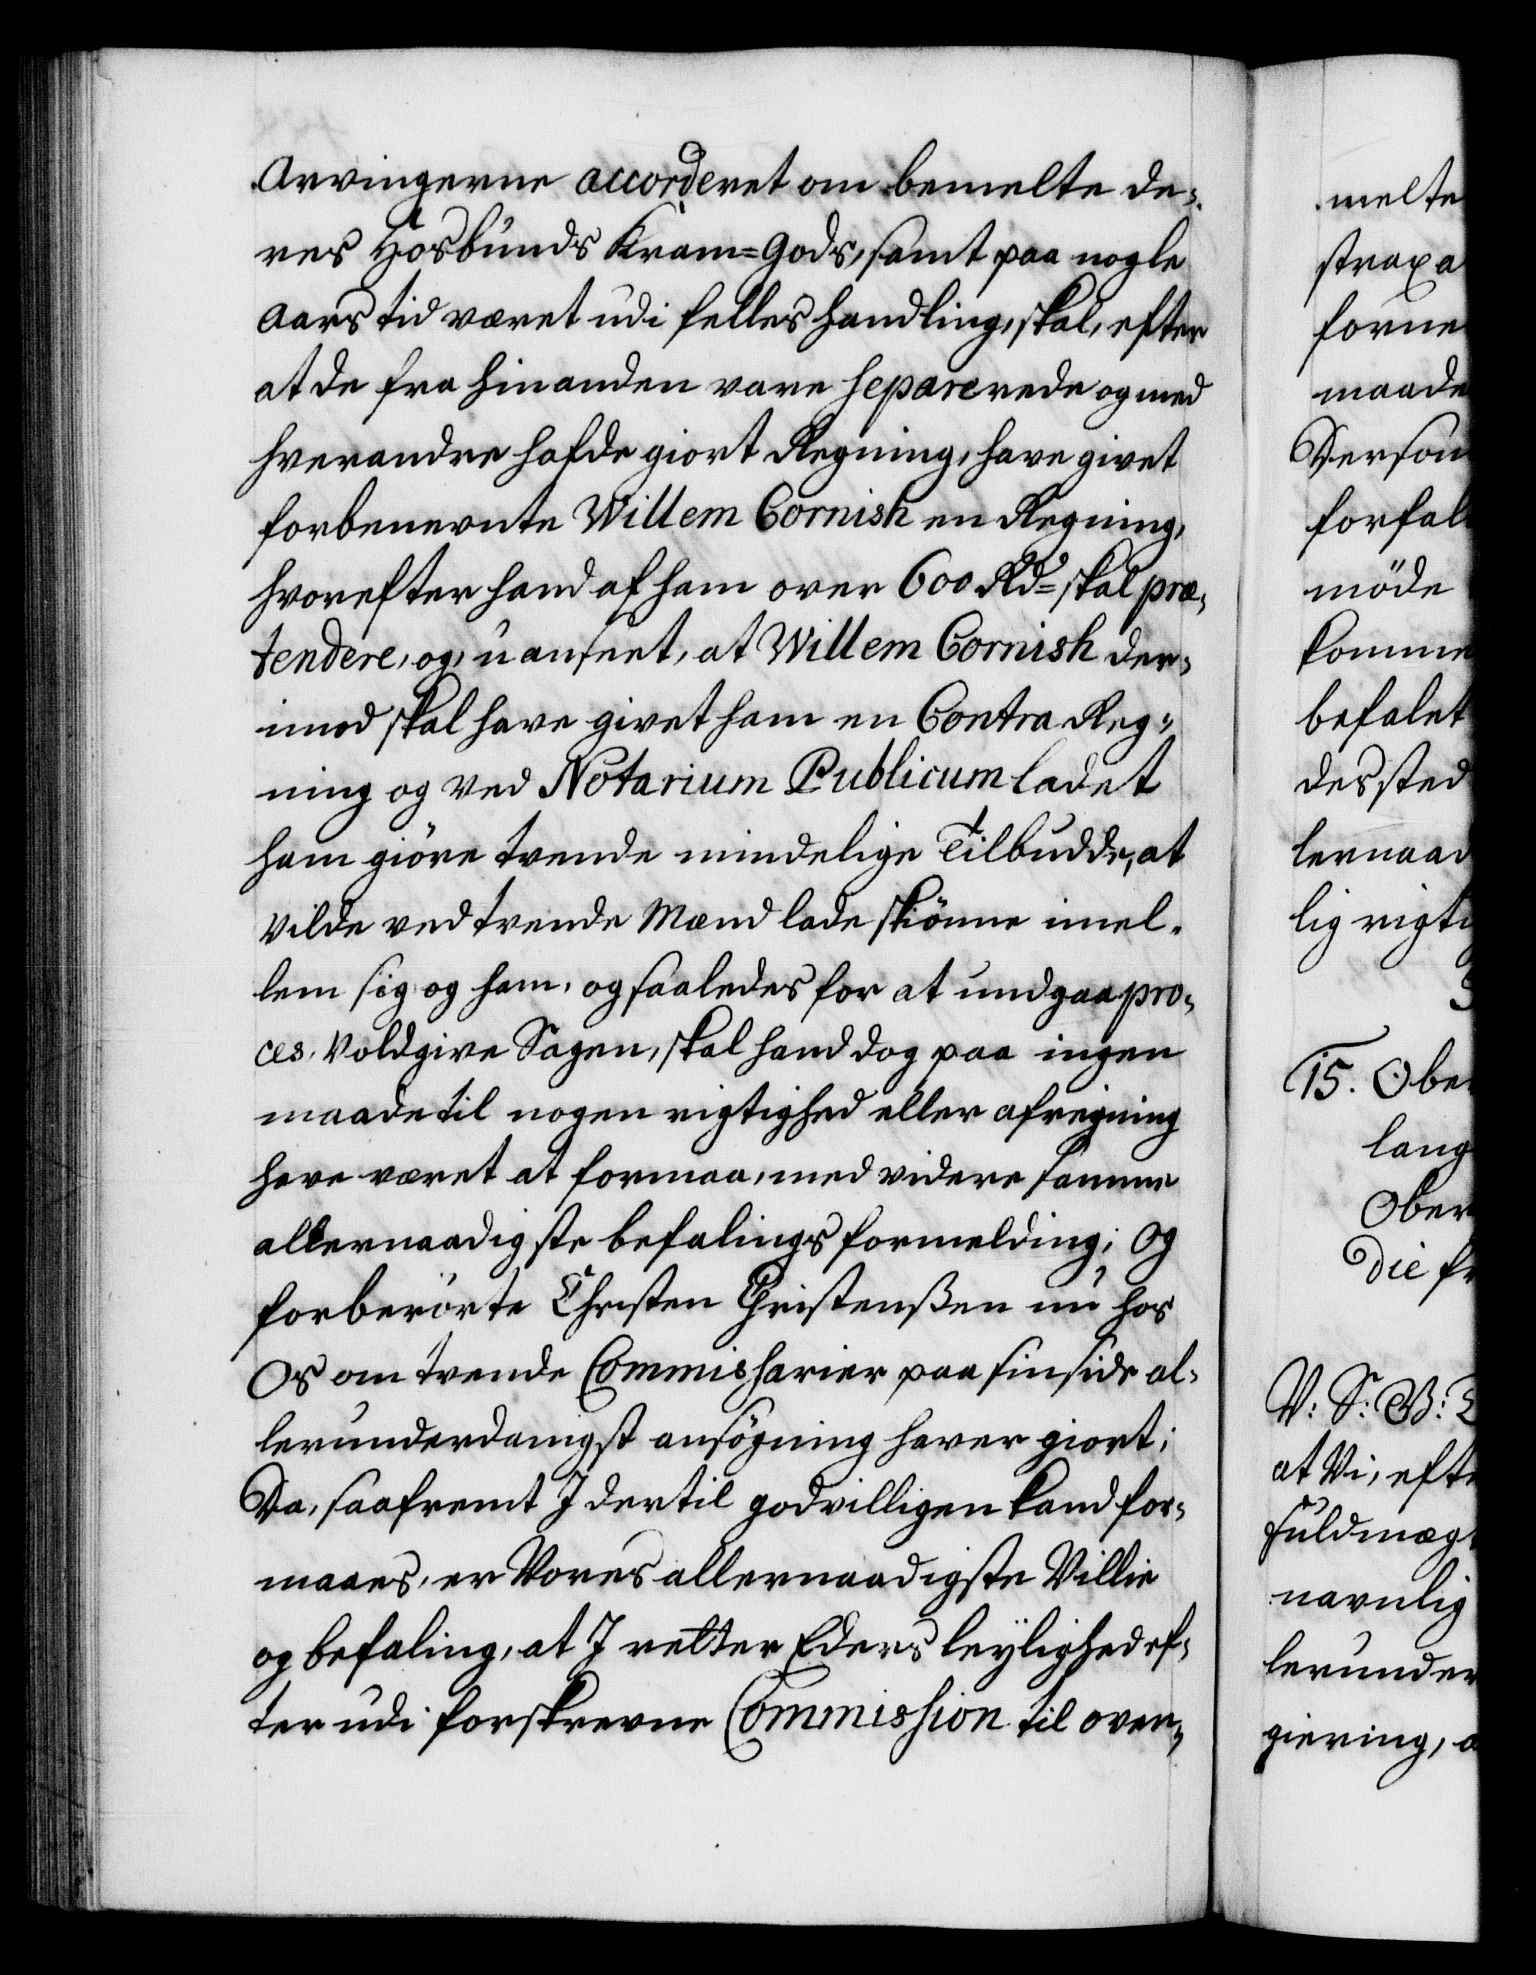 Arvingerne accorderet om bemelte de-
res Hosbunds Kram=Gods, samt paa nogle
Aars tid været udi felles handling, skal, efter
at de fra hinanden vare separerede og med
hverandre hafde giort Regning, have givet
forbenevnte Willem Cornish en Regning,
hvorefter hand af ham over 600 Rd= skal præ-
tendere, og, uanseet, at Willem Cornish der-
imod skal have givet ham en Contra Reg-
ning og ved Notarium Publicum ladet
ham giöre trende mindelige Tilbudde, at
vilde ved trende Mænd lade skiönne imel-
lem sig og ham, og saaledes for at undgaa pro-
ces, Voldgive Sagen, skal hand dog paa ingen
maade til nogen rigtighed eller afregning
have været at formaa, med videre samme
allernaadigste befalings formelding; Og
forberörte Christen Christenßen nu hos
Os om trende Commissarier paa sin side al-
lerunderdanigst ansögning haver giort;
Da, saafremt I dertil godvilligen kand for-
maaes, er Vores allernaadigste Villie
og befaling, at I retter Eders leylighed ef-
ter udi forskrevne Commission til over-
melte
strax a
forne
maade
Person
forfal
möde
komme
befalet
dessted
lernaad
lig rigti
15. Ober
lang
Ober
Die fr
V: S: G:
at Vi, efte
Fuldmæg
navnlig
lerunder
giering, a